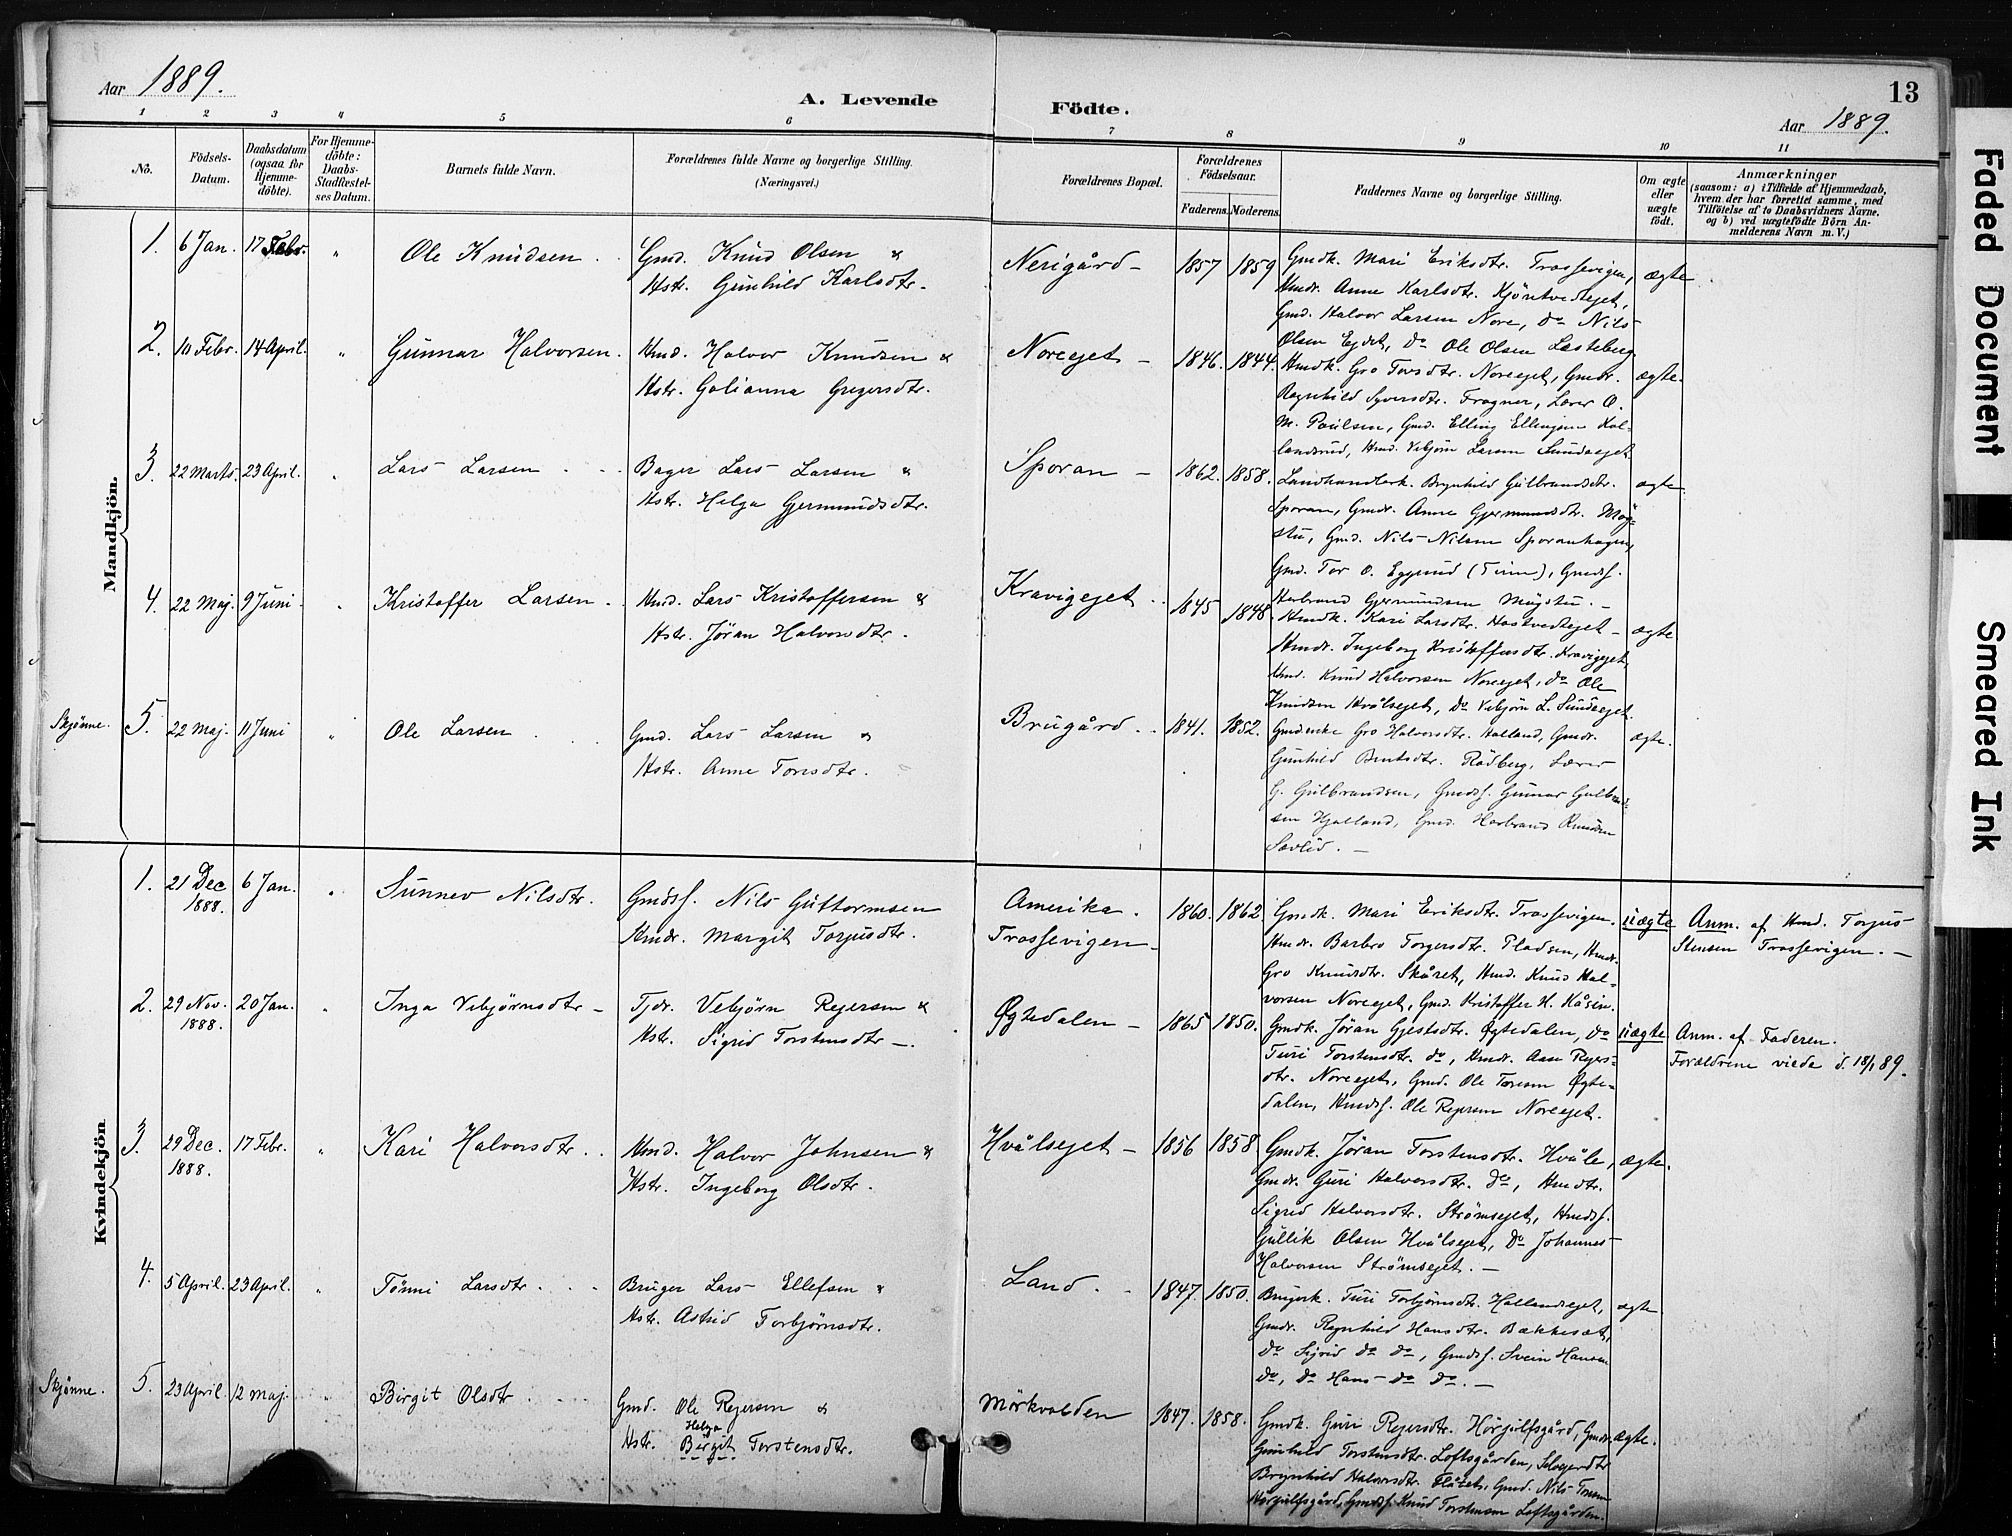 Aar 1889.
A. Levende
Födte.
13
Aar 1889.
1 2 3 4 5 6 7 8 9 10 11
No.
Födsels-
Datum.
Daabsdatum
(ogsaa for
Hjemme-
döbte).
For Hjemme-
döbte:
Daabs-
Stadfæstel-
ses Datum.
Barnets fulde Navn.
Forældrenes fulde Navne og borgerlige Stilling.
(Næringsvei.)
Forældrenes Bopæl.
Forældrenes
Födselsaar.
Faderens. Moderens.
Faddernes Navne og borgerlige Stilling.
Om ægte
eller
uægte
födt.
Anmærkninger
(saasom: a) i Tilfælde af Hjemmedaab,
hvem der har forrettet samme, med
Tilföielse af to Daabsvidners Navne,
og b) ved uægtefödte Börn An-
melderens Navn m. V.)
Mandkjön.
1. 6 Jan. 17 Febr. " Ole Knudsen
Gmd. Knud Olsen &
Hstr. Gunhild Karlsdtr.
Nerigård – 1857 1859
Gmdk. Mari Eriksdtr. Trossevigen,
Hmdr. Anne Karlsdtr. Kjöntvedtejet,
Gmd. Halvor Larsen Nore, Do Nils
Olsen Ejdet, Do Ole Olsen Læsteberg
ægte
2. 10 Febr. 14 April. " Gunnar Halvorsen.
Hmd. Halvor Knudsen &
Hstr. Golianna Gregersdtr.
Noreejet – 1846. 1844.
Hmdk. Gro Torsdtr. Noreejet, Gmdr.
Ragnhild Syversdtr. Fragner, Lærer O.
M. Paulsen, Gmd. Elling Ellingsen Hal-
landsrud, Hmd. Vebjörn Larsen Sundsejet
ægte.
3. 22 Marts. 23 April. " Lars Larsen
Bager Lars Larsen &
Hstr. Helga Gjermundsdtr.
Sporan – 1862. 1858.
Landhandlerk. Brynhild Gulbrandsdtr.
Sporan, Gmdr. Anne Gjermundsdtr. Mög-
stu, Gmd. Nils Nilsen Sporanhagen,
Gmd. Tor O. Eggerud (Tinn), Gmdsf.
Herbrand Gjermundsen Mögstu. –
ægte
4. 22 Maj. 9 Juni " Kristoffer Larsen
Hmd. Lars Kristoffersen &
Hstr. Jöran Halvorsdtr.
Kravigejet 1845 1848.
Hmdk. Kari Larsdtr. Hastvedtejet –
Hmdr. Ingeborg Kristoffersdtr. Kravigejet,
Hmd. Knud Halvorsen Noreejet, Do Ole
Knudsen Hvålsejet, Do Vebjörn L. Sundsejet
ægte
Skjönne. 5. 22 Maj. 11 Juni " Ole Larsen
Gmd. Lars Larsen &
Hstr. Anne Torsdtr.
Brugård 1841. 1852.
Gmdenke Gro Halvorsdtr. Halland, Gmdr.
Gunhild Bentsdtr. Rödberg, Lærer
G. Gulbrandsen, Gmdsf. Gunnar Gulbrand-
sen Hjalland, Gmd. Herbrand Knudsen
Savlid. –
ægte.
Kvindekjön.
1. 21 Dec 1888. 6 Jan. " Sunnev Nilsdtr.
Gmdsf. Nils Guttormsen
Hmdr. Margit Torjusdtr.
Amerika.
Trossevigen – 1860. 1862
Gmdk. Mari Eriksdtr. Trossevigen.
Hmdr. Barbro Torgersdtr. Pladsen, Hmdr.
Gro Knudsdtr. Skåret, Hmd. Knud Hal-
vorsen Noreejet, Gmd. Kristoffer H. Håsein.
uægte
Anm. af Hmd. Torjus
Stensen Trossevigen. –
2. 29 Nov. 1888. 20 Jan. " Inga Vebjörnsdtr –
Tjdr. Vebjörn Rejersen &
Hstr. Sigrid Torstensdtr –.
Øgtedalen – 1865 1850.
Gmdk. Jöran Gjestsdtr. Øgtedalen, Do
Turi Torstensdtr. do, Hmdr. Aase Rejers-
dtr. Noreejet, Gmd. Ole Toresen Øgte-
dalen, Hmdsf. Ole Rejersen Noreejet.
uægte
Anm. af Faderen.
Forældrene viede d. 18/1 89.
3. 29 Dec. 1888. 17 Febr. " Kari Halvorsdtr.
Hmd. Halvor Johnsen &
Hstr. Ingeborg Olsdtr.
Hvålsejet – 1856 1858
Gmdk. Jöran Torstensdtr. Hvåle,
Gmdr. Guri Halvorsdtr. Do, Hmdtr.
Sigrid Halvorsdtr. Strömsejet, Hmdsf.
Gullik Olsen Hvålsejet, Do Johannes
Halvorsen Strömsejet. –
ægte.
4. 5 April. 23 April. " Tönni Larsdtr.
Bruger Lars Ellefsen &
Hstr. Astrid Torbjörnsdtr.
Land. 1847. 1850.
Brugerk. Turi Torbjörnsdtr. Hallandsejet,
Gmdr. Ragnhild Hansdtr. Bækkesæt,
Do Sigrid do do, Gmdsf. Svein Hansen
do, Do Hans do do. –
ægte
Skjönne. 5. 23 April. 12 Maj. " Birgit Olsdtr
Gmd. Ole Rejersen &
Helga
Hstr. Birgit Torstensdtr.
Mörkvolden 1847. 1858.
Gmdk. Guri Rejersdtr. Hörgulfsgård, Gmdr.
Gunhild Torstensdtr. Loftsgården,
Brynhild Halvorsdtr. Flåtet, Gmd. Nils
Hörgulfsgård, Gmdsf. Knud Torstensen Loftsgården.
ægte.
Faded Document
Smeared Ink